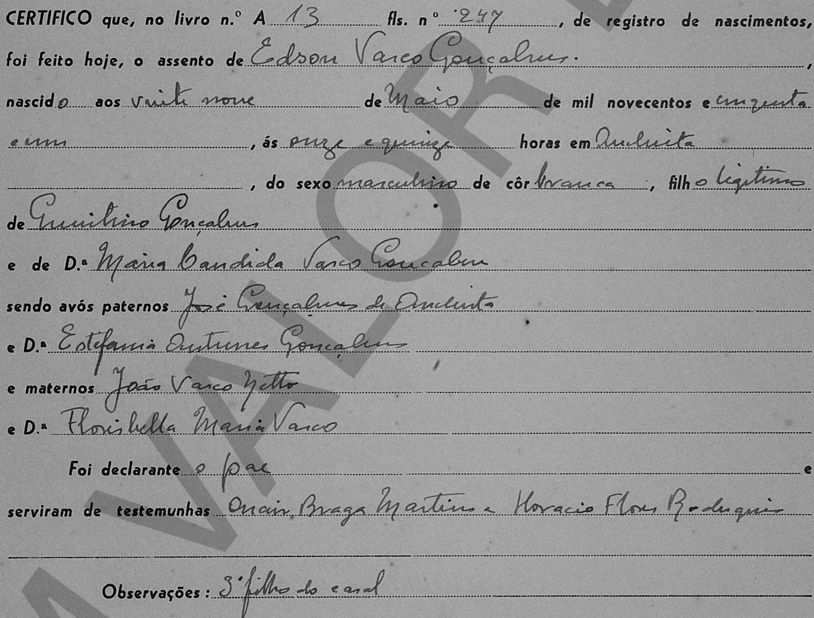 CERTIFICO que, no livro n.º A 13 fls. nº 247, de registro de nascimentos,
foi feito hoje, o assento de Edson Vasco Gonçalves.,
nascido aos vinte nove de Maio de mil novecentos e cinquenta
e um, ás onze e quinze horas em Anchieta
, do sexo masculino de côr branca, filho legitimo
de Gonçalves
e de D.ª Maria Candida Vasco Gonçalves
sendo avós paternos José Gonçalves de Anchieta
e D.ª Estefania Antunes Gonçalves
e maternos João Vasco Netto
e D.ª Florisbella Maria Vasco
Foi declarante o pae e
serviram de testemunhas Braga Martins e Horacio Flores Rodrigues
Observações: 3º filho do casal
VALOR